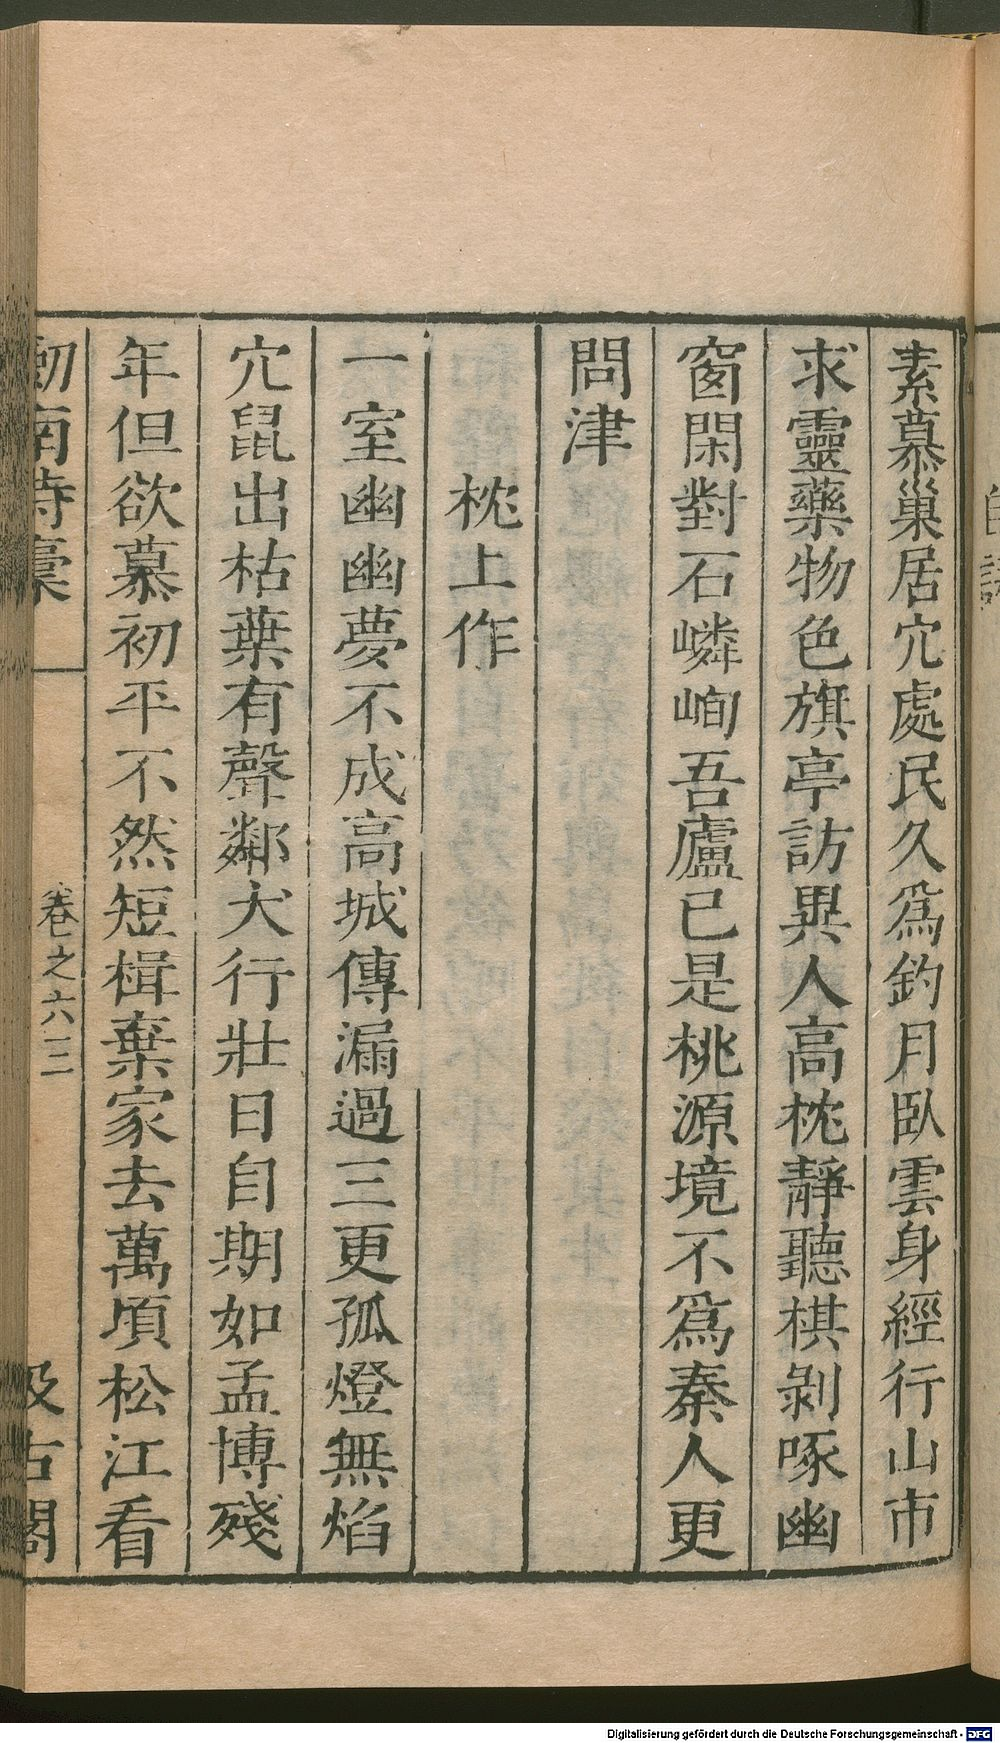 素慕巢居穴處民久爲釣月臥雲身經行山市
求靈藥物色旗亭訪異人高枕靜聽棋剝啄幽
窗閑對石嶙峋吾廬已是桃源境不爲秦人更
問津
枕上作
一室幽幽夢不成高城傳漏過三更孤燈無焰
穴鼠出枯葉有聲鄰犬行壯日自期如孟博殘
年但欲慕初平不然短楫棄家去萬頃松江看
劍南詩稾
卷之六三
汲古閣
Digitalisierung gefördert durch die Deutsche Forschungsgemeinschaft - DFG